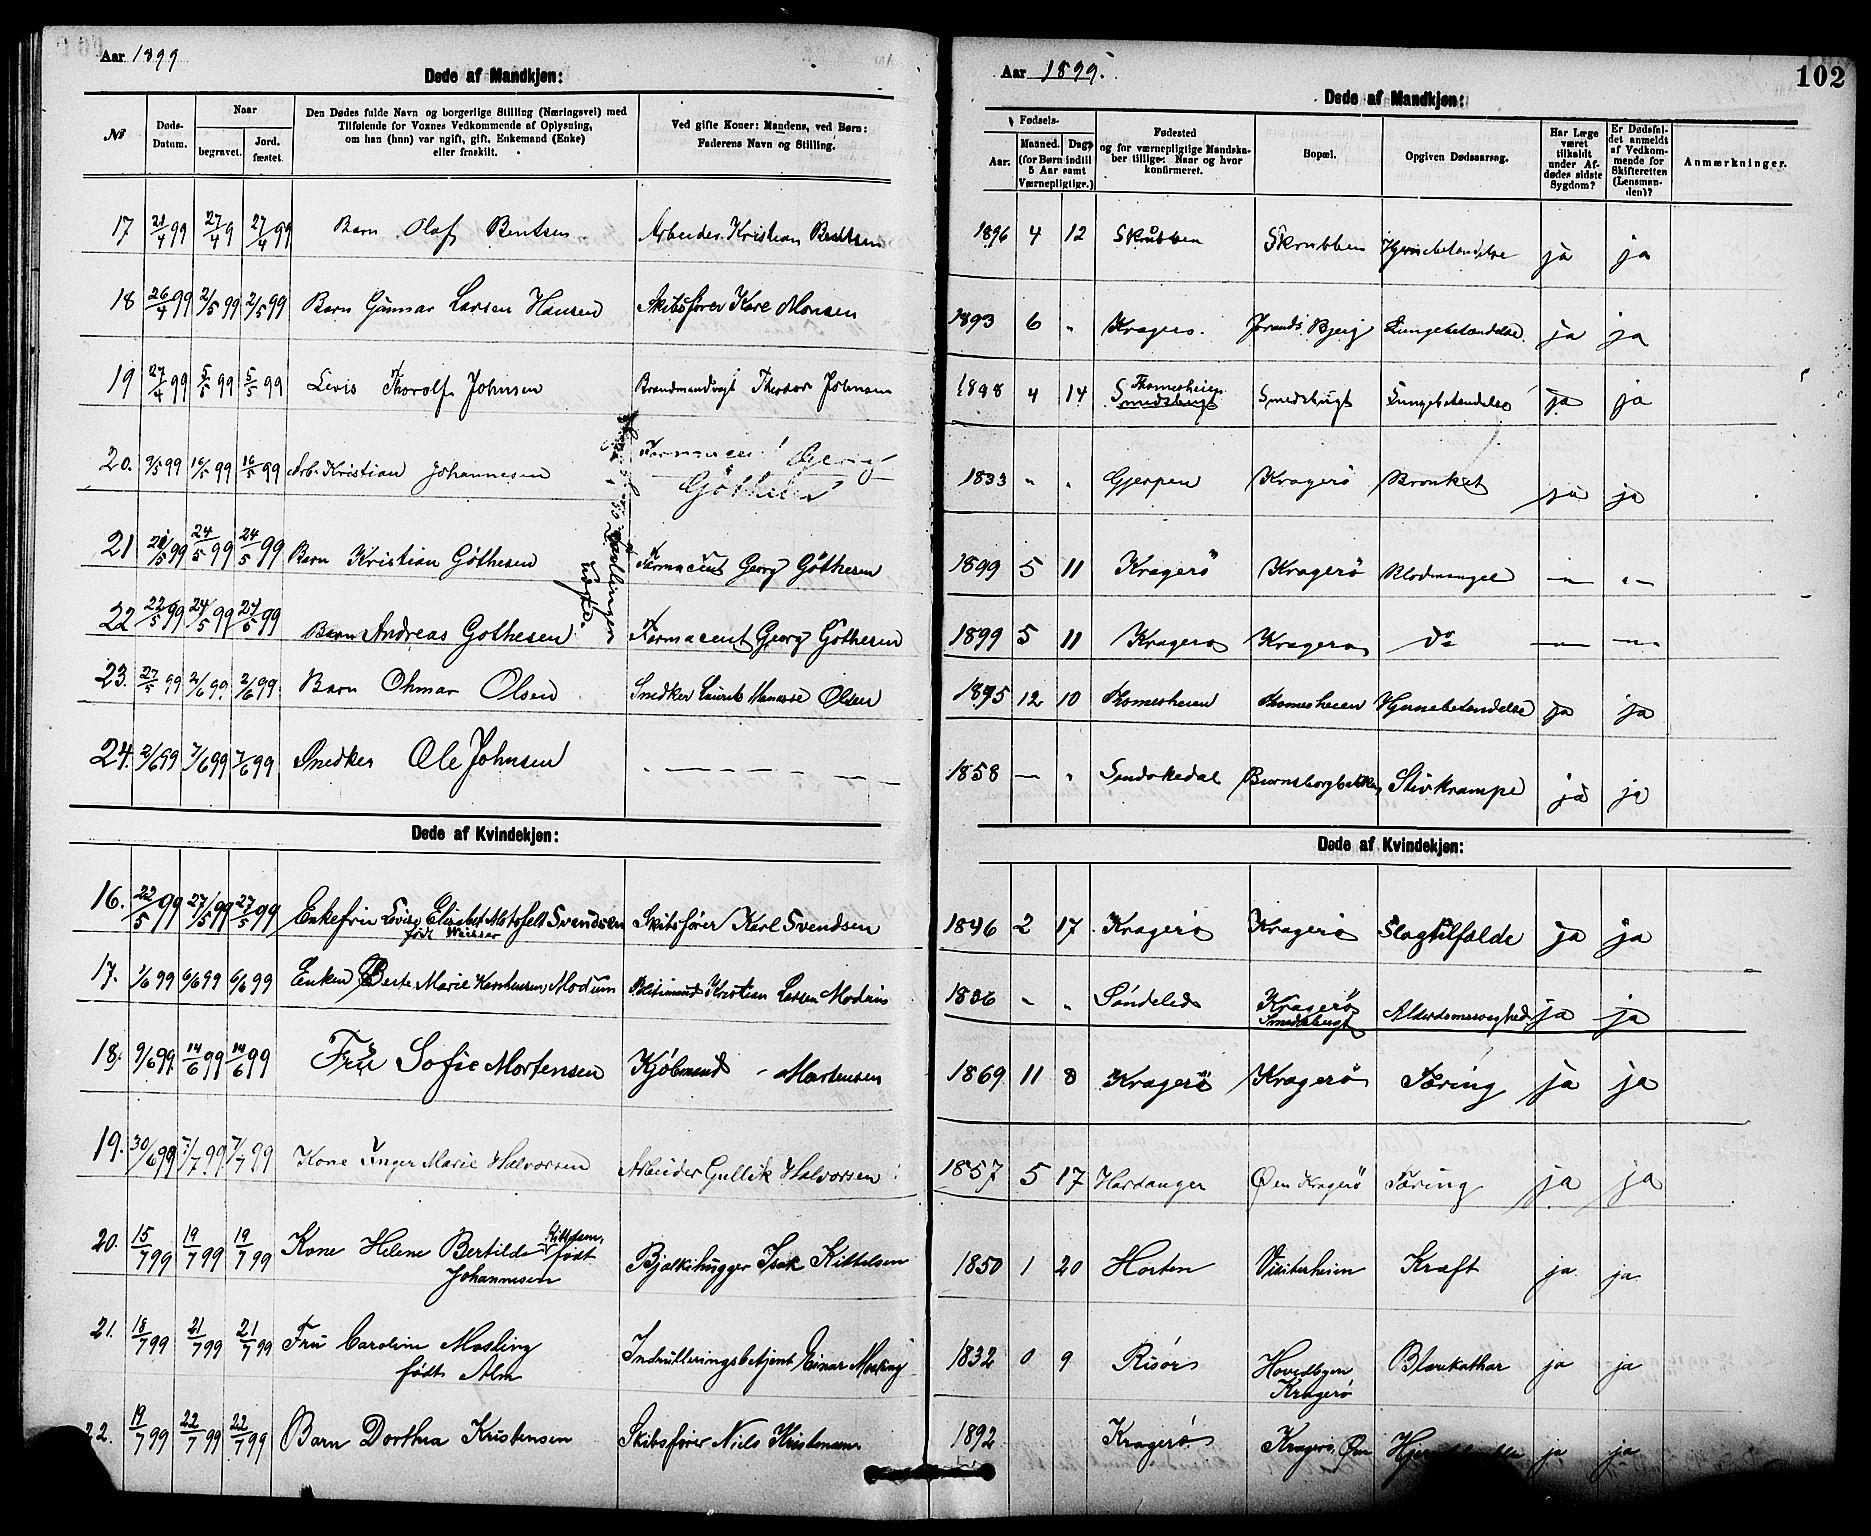 Aar 1899
Døde af Mandkjøn:
No
Døds-Datum.
Naar
begravet.
Jord-fæstet.
Den Dødes fulde Navn og borgerlige Stilling (Næringsvei) med
Tilføiende for Voxnes Vedkommende af Oplysning,
om han (hun) var ugift, gift, Enkemand (Enke)
eller fraskilt.
Ved gifte Koner: Mandens, ved Børn:
Faderens Navn og Stilling.
17 21/4 99 27/4 9 27/4 99 Barn Olaf Bentsen Arbeider Kristian Bentsen
18 26/4 99 2/5 99 2/5 99 Barn Gunnar Larsen Hansen Skibsfører Kare Monsen
19 27/4 99 5/5 99 5/5 99 Levis Thorolf Johnsen Brandmandvagt Theodor Johnsen
20. 9/5 99 16/5 99 16/5 99 Arb. Kristian Johannesen Farmaceut Georg
Göthesen
21 21/5 99 24/5 99 24/5 99 Barn Kristian Göthesen Farmaceut Georg Göthesen
22 22/5 99 24/5 99 24/5 99 Barn Andreas Gothesen Farmacent Georg Gøthesen
Tvillinger
23. 27/5 99 2/6 99. 2/6 99. Barn Ohmar Olsen Snedker Laurits Manasse Olsen
24. 2/6 99 7/6 99 7/6 99 Snedker Ole Johnsen - - - - - -
Døde af Kvindekjøn:
16. 22/5 99 27/5 99 27/5 99 Enkefru Lovise Elisabet Motzfelt Svendsen Skibsfører Karl Svendsen
født Weisser
17. 1/6 99 6/6 99 6/6 99 Enken Berte Marie Karstensen Modum Kristian Larsen Modum
18. 9/6 99. 14/6 99 14/6 99 Fru Sofie Mortensen Kjöbmand - Mortensen
19. 30/6 99 7/7 99. 7/7 99 Kone Inger Marie Halvorsen Arbeider Gullik Halvorsen
20. 15/7 99 19/7 99 19/7 99 Kone Helene Bertilde Kittelsen, født
Johannesen Bjælkehugger Isak Kittelsen
21. 18/7 99 21/7 99 21/7 99 Fru Caroline Mosling
født Alm Indrulleringsbetjent Einar Mosling
22. 19/7 99 22/7 99 22/7 99 Barn Dorthea Kristensen Skibsfører Niels Kristensen
Aar 1899.
102
Døde af Mandkjøn:
Fødsels-
Aar.
Maaned. Dag
(for Børn indtil
5 Aar samt
Værnepligtige.)
Fødested
og for værnepligtige Mandska-
ber tillige: Naar og hvor
konfirmeret.
Bopæl.
Opgiven Dødsaarsag.
Har Læge
været
tilkaldt
under Af-
dødes sidste
Sygdom?
Er Dødsfal-
det anmeldt
af Vedkom-
mende for
Skifteretten
(Lensman-
den)?
Anmærkninger.
1896 4 12 Skrubben Skrubben Hjernebetændelse ja ja
1893 6 " Kragerø. Jbrands Bjerg Lungebetændelse ja ja
1898 4 14 Tromesheien
Smedsbugt Smedsbugt Lungebetændelse ja ja
1833 " " Gjerpen Kragerö Bronket ja ja
1899 5 11 Kragerö Kragerö Blodmangel — " —
1899 5 11 Kragerø Kragerø do — — " —
1895 12 10 Tromesheien Tromesheien Hjernebetændelse ja ja
1858 — " Sandøkedal Bjørnsborgbakken Stivkrampe ja ja
Døde af Kvindekjøn:
1846 2 17 Kragerø Kragerø Slagtilfælde ja ja
1836 " " Søndeled Kragerø
Smedsbugt Alderdomssvaghed ja ja
1869 11 8 Kragerö Kragerö Tæring ja ja
1857 5 17 Hardanger Øen Kragerö Tæring ja ja
1850 1 20 Horten Visiterheien Kræft ja. ja
1832 0 9 Risør Hovedbyen
Kragerø Blærekathar ja ja
1892 Kragerø. Kragerø, Øen ja ja